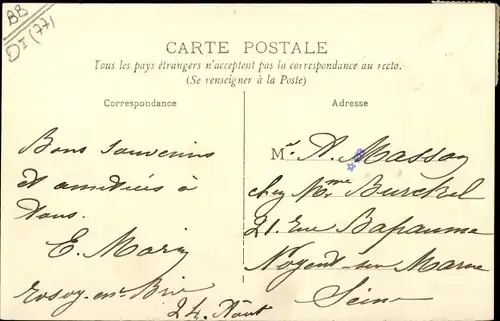 BB
DI (77)
CARTE POSTALE
Tous les pays étrangers n'acceptent pas la correspondance au recto.
(Se renseigner à la Poste)
Correspondance
Adresse
Bons souvenirs
et amitiés à
tous.
E. Morin
Rosoy-en-Brie
24 Août
Mr. A. Masson
chez Mme Burckel
21 Rue Bapaume
Nogent-sur Marne
Seine